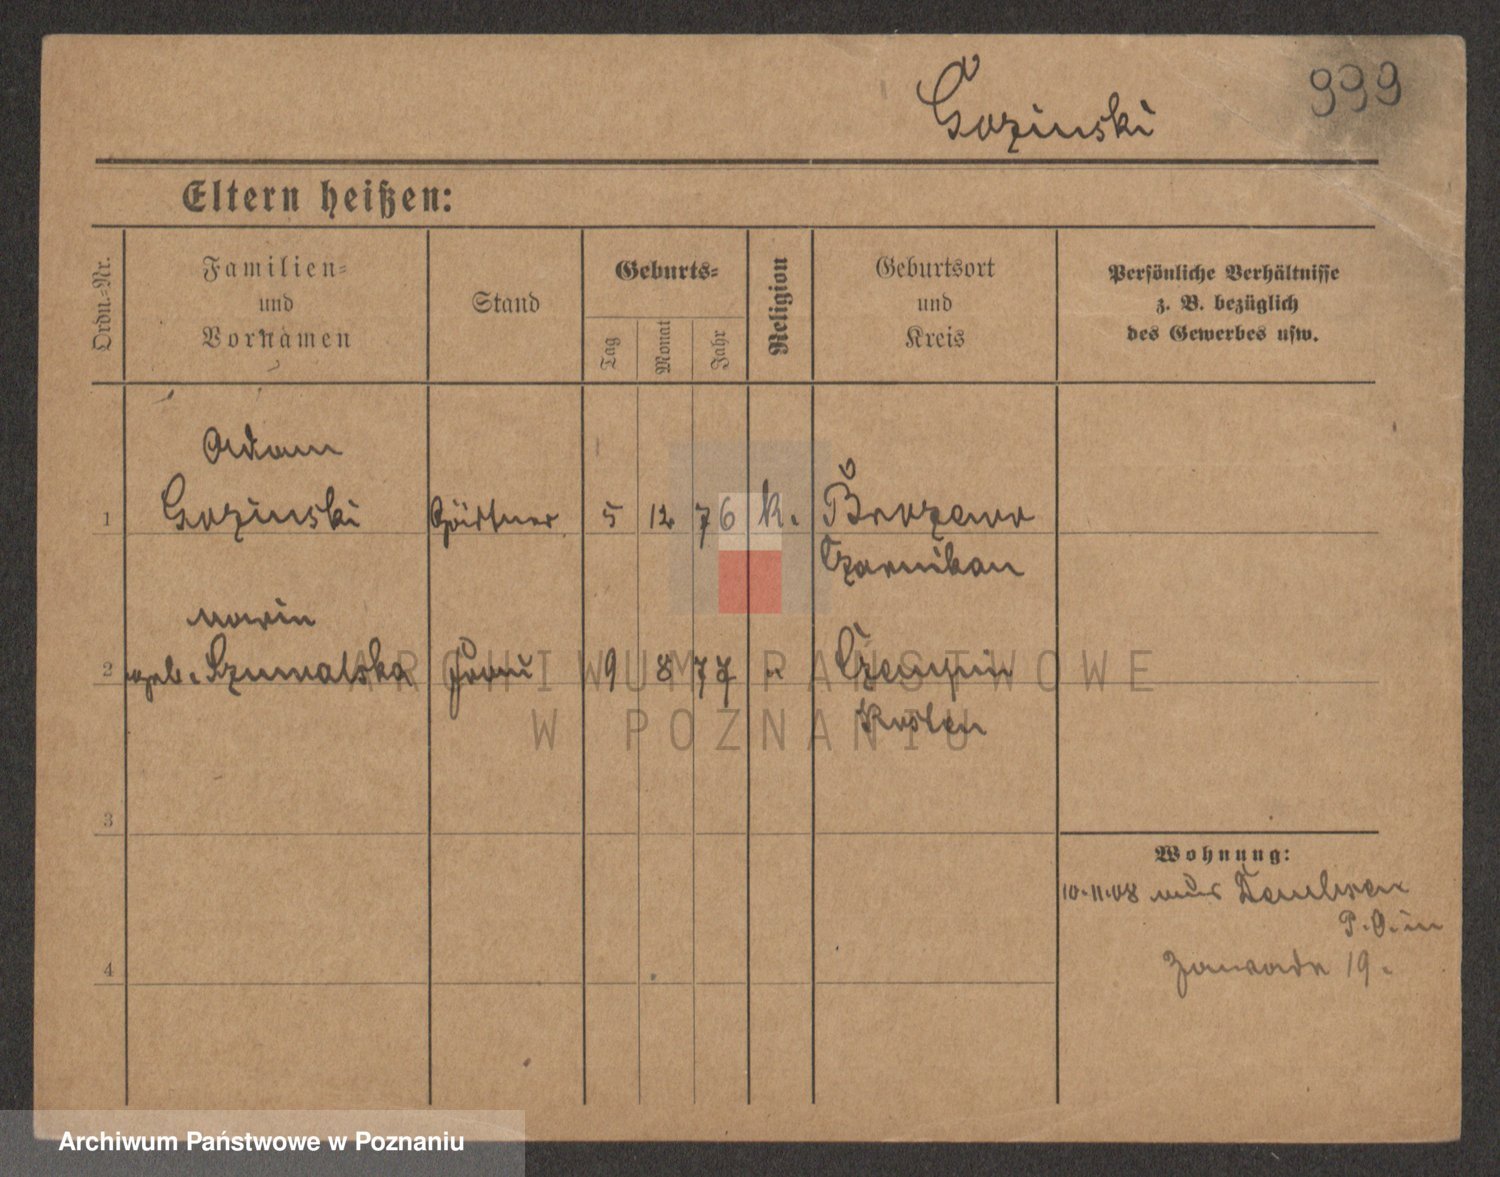 999
Gozinski
Eltern heißen:
Ordn.-Nr.
Familien-
und
Vornamen
Stand
Geburts-
Tag
Monat
Jahr
Religion
Geburtsort
und
Kreis
Persönliche Verhältnisse
z. B. bezüglich
des Gewerbes usw.
Adam
1 Gozinski Gärtner 5 12 76 k.
Czarnikau
Maria
2 geb. Frau 9 8 77 "
Czempin
Kosten
3
Wohnung:
10.11.08 aus
P. O. in
4
Zawade 19.
ARCHIWUM PAŃSTWOWE
W POZNANIU
Archiwum Państwowe w Poznaniu